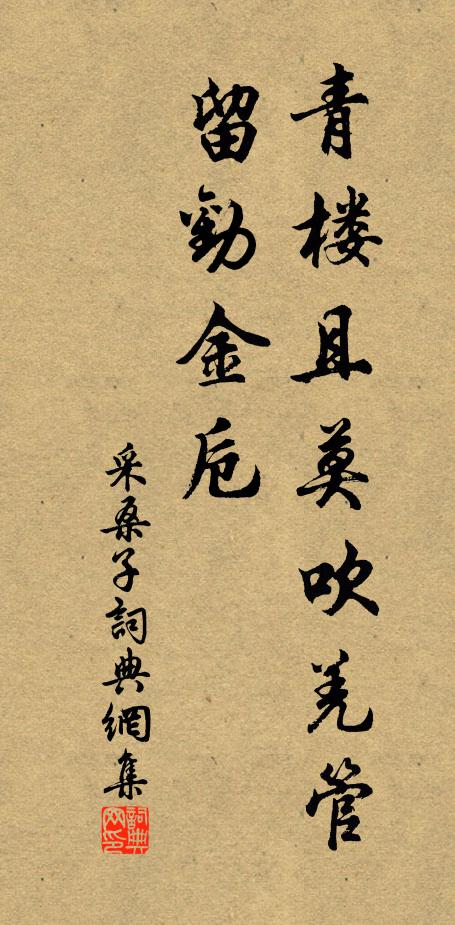 青楼且莫吹羌管
留勸金卮
采桑子詞典網集
詞典
网印